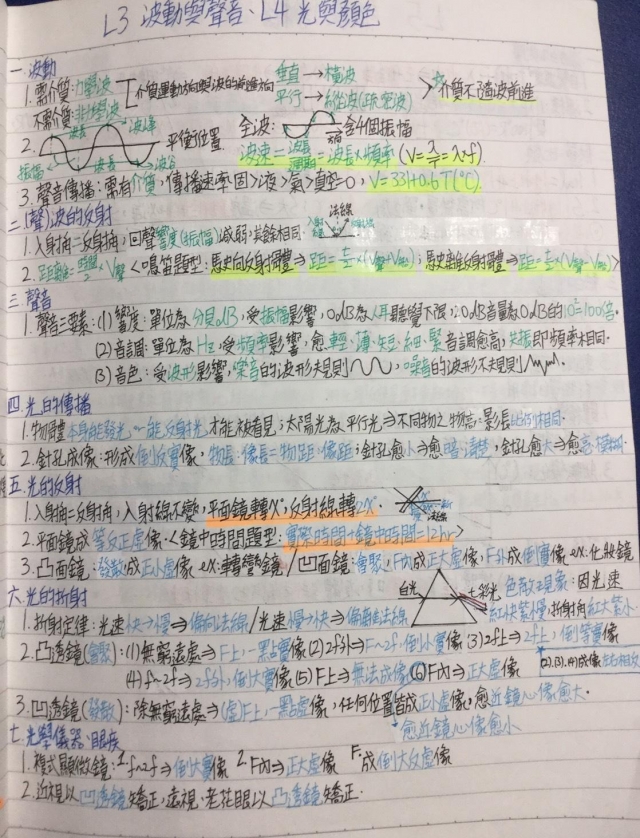 L3 波動與聲音、L4 光與顏色
一.波動
1.需介質:力學波 介質運動方向與波的前進方向 垂直→橫波 介質不隨波前進
不需介質:非力學波 平行→縱波(疏密波)
2. 波長 波峰 平衡位置 全波: 含4個振幅
振幅 波長 波谷 波速=波長/週期=波長×頻率(V=λ/T=λ×f)
3.聲音傳播:需有介質,傳播速率:固>液>氣>真空=0, V=331+0.6T(°C).
二.(聲)波的反射 法線
1.入射角=反射角,回聲響度(振幅)減弱,其餘相同.
2.距離=時間/2×V聲<鳴笛題型:駛向反射體⇒距離=t/2×(V聲+V車);駛離反射體⇒距離=t/2×(V聲-V車)>
三.聲音
1.聲音三要素:(1)響度:單位為分貝dB,受振幅影響,0dB為人耳聽覺下限,20dB音量為0dB的10²=100倍.
(2)音調:單位為Hz,受頻率影響,愈輕、薄、短、細、緊音調愈高,共振即頻率相同.
(3)音色:受波形影響,樂音的波形有規則 ,噪音的波形不規則 .
四.光的傳播
1.物體本身能發光or能反射光才能被看見;太陽光為平行光⇒不同物之物高:影長比例相同.
2.針孔成像:形成倒立實像,物長:像長=物距:像距;針孔愈小⇒愈暗、清楚,針孔愈大⇒愈亮、模糊.
五.光的反射
1.入射角=反射角,入射線不變,平面鏡轉x°,反射線轉2x°. 法線
2.平面鏡成等反正虛像.<鏡中時間題型:實際時間+鏡中時間=12hr>
3.凸面鏡:發散,成正小虛像,ex:轉彎鏡/凹面鏡:會聚,F內成正大虛像,F外成倒實像 ex:化妝鏡
六.光的折射 白光 七彩光 色散現象:因光速
1.折射定律:光速快→慢⇒偏向法線/光速慢→快⇒偏離法線 紅快紫慢,折射角紅大紫小
2.凸透鏡(會聚):(1)無窮遠處⇒F上,一點實像(2)2f外⇒F~2f,倒小實像(3)2f上⇒2f上,倒等實像
(4)f~2f⇒2f外,倒大實像(5)F上⇒無法成像(6)F內⇒正大虛像 (2).(3).(4)成像左右相反
3.凹透鏡(發散):除無窮遠處⇒(虛)F上,一點虛像,任何位置皆成正小虛像,愈近鏡心像愈大.
愈近鏡心像愈小
七.光學儀器、眼疾
1.複式顯微鏡:1.f~2f⇒倒大實像 2.F內⇒正大虛像 F.成倒大反虛像
2.近視以凹透鏡矯正,遠視、老花眼以凸透鏡矯正.